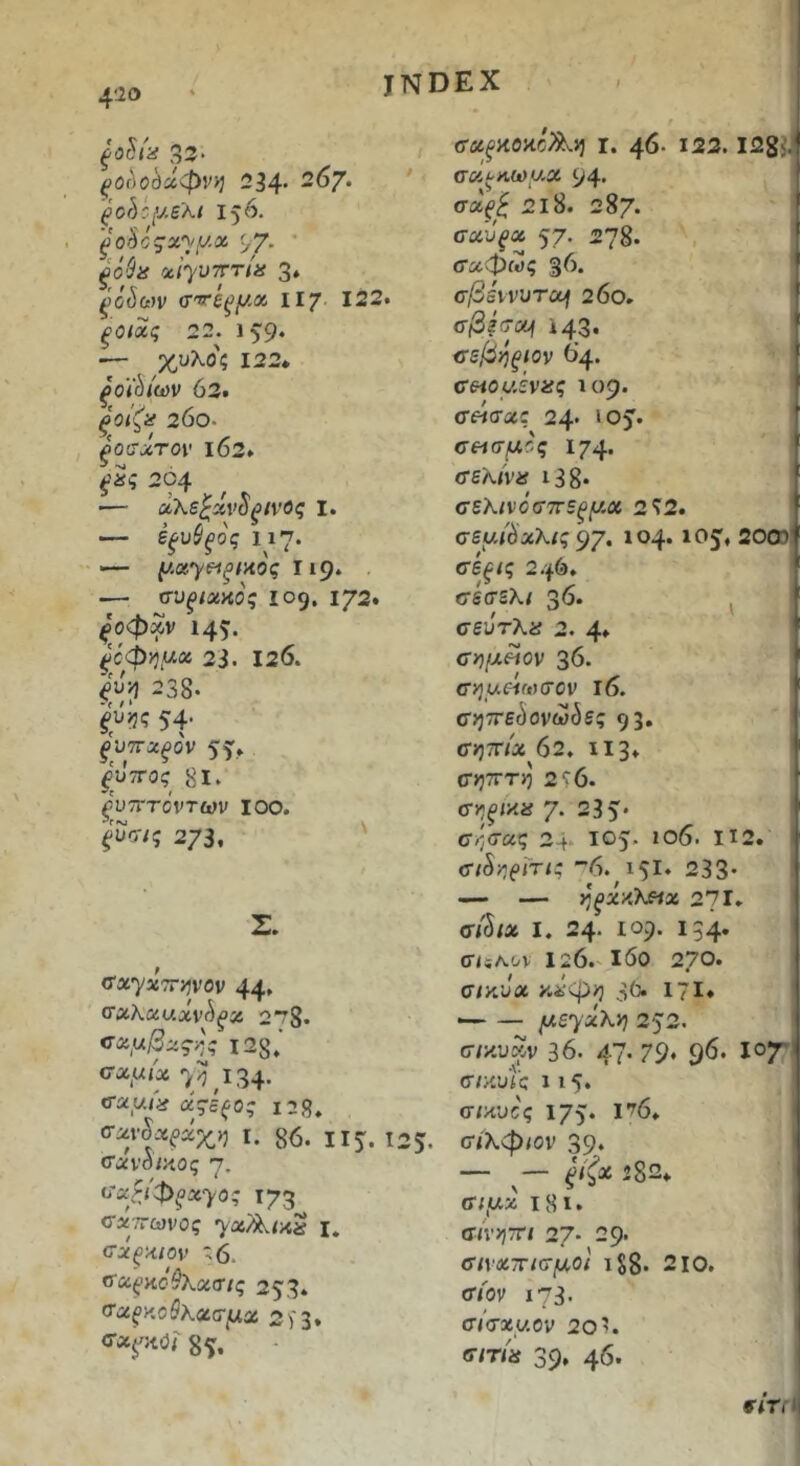 420
INDEX
ῥοδίȣ 32.
ῥοδοδάφνη 234. 267.
ῥοδόμελι 156.
ῥοδόςαγμα 97.
ῥόθȣ αἰγυπτίȣ 3.
ῥόδων σπέρμα 117 122.
ῥοιᾶς 22. 159.
— χυλὸς 122.
ῥοϊδίων 62.
ῥοίζȣ 260.
ῥοσάτον 162.
ῥȣ̃ς 204
— ἀλεξάνδρινος 1.
— ἐρυθρὸς 117.
— μαγειρικὸς 119.
— συριακὸς 109. 172.
ῥοφᾶν 145.
ῥόφημα 23. 126.
ῥύη 238.
ῥύης 54.
ῥυπαρὸν 55.
ῥύπος 81.
ῥυπτόντων 100.
ῥῦσις 273.
Σ.
σαγάπηνον 44.
σαλαμάνδρα 278.
σαμβαςῆς 128.
σαμία γῆ 134.
σαμίȣ ἀςέρος 128.
σανδαράχη 1. 86. 115. 125.
σάνδικος 7.
σαξίφραγος 173
σάπωνος γαλλικȣ̃ 1.
σάρκιον 36.
σαρκόθλασις 253.
σαρκοθλασμα 253.
σαρκὸι 85.
σαρκοκόλλη 1. 46. 122. 128.
σαρκωμα 94.
σὰρξ 218. 287.
σαυρα 57. 278.
σαφῶς 36.
σβέννυται 260.
σβέσαι 143.
σεβήριον 64.
σειομένȣς 109.
σείσας 24. 105.
σεισμὸς 174.
σελίνȣ 138.
σελινόσπερμα 252.
σεμίδαλις 97. 104. 105, 200
σέρις 246.
σέσελι 36.
σεύτλȣ 2. 4.
σημεῖον 36.
σημείωσον 16.
σηπεδονώδες 93.
σηπία 62. 113.
σηπτὴ 256.
σηρικȣ 7. 235.
σήσας 24. 105. 106. 112.
σιδηρῖτις 76. 151. 233.
— — ἡράκλεια 271.
σίδια 1. 24. 109. 134.
σίελον 126. 160 270.
σικύα κȣ́φη 36. 171.
— — μεγάλη 252.
σικυᾶν 36. 47. 79. 96. 107
σικυῒς 115.
σικυὸς 175. 176.
σίλφιον 39.
— — ῥίζα 282.
σιμὰ 181.
σίνηπι 27. 29.
σιναπισμοὶ 188. 210.
σίον 173.
σίσαμον 203.
σιτίȣ 39. 46.
σίτι